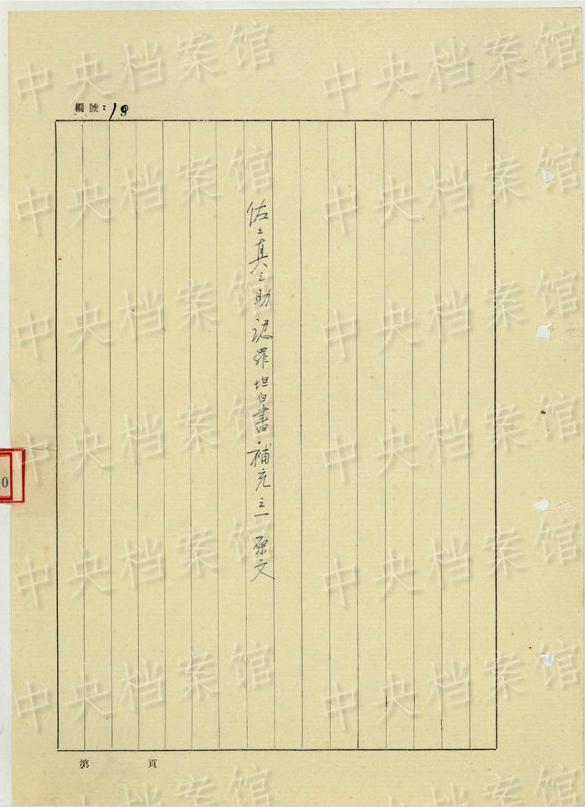 編號：19
佐々真之助认罪坦白書・補充之一 原文
第 頁
0
中央档案馆